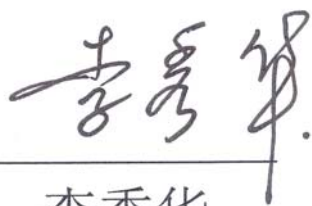 李秀华
李秀华